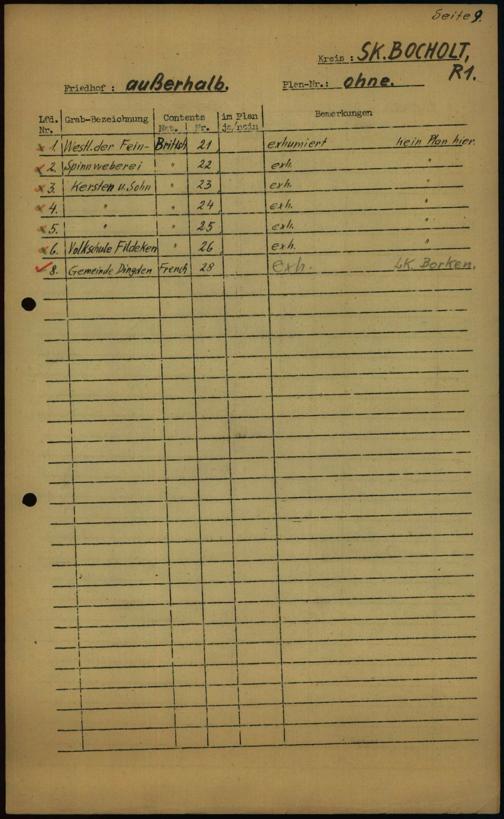 Seite 9.
Kreis : SK. BOCHOLT,
R1.
Friedhof : außerhalb. Plan-Nr.: ohne.
Lfd. Nr. Grab-Bezeichnung Contents Nat. Nr. im Plan ja/nein Bemerkungen
x 1. Westl. der Fein- British 21 exhumiert Kein Plan hier.
x 2. Spinnweberei " 22 exh. "
x 3. Kersten u. Sohn " 23 exh. "
x 4. " " 24 exh. "
x 5. " " 25 exh. "
x 6. Volkschule Fildeken " 26 exh. "
✓ 8. Gemeinde Dingden French 28 exh. LK. Borken.